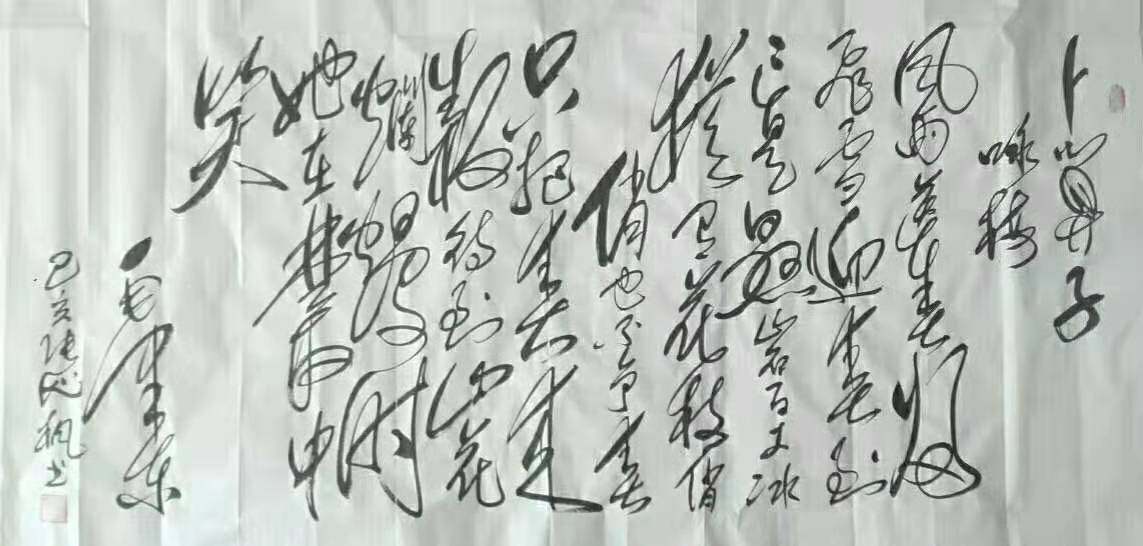 卜算子
咏梅
风雨送春归
飛雪迎春到
已是悬岩百丈冰
犹有花枝俏
俏也不争春
只把春来
報待到山花
爛熳时
她在叢中
笑
毛泽东
己亥 枫书